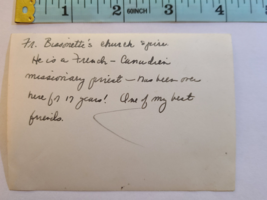 Fr. Bissonnette's church spire
He is a French-Canadien
missionary priest - has been over
here for 17 years! One of my best
friends.